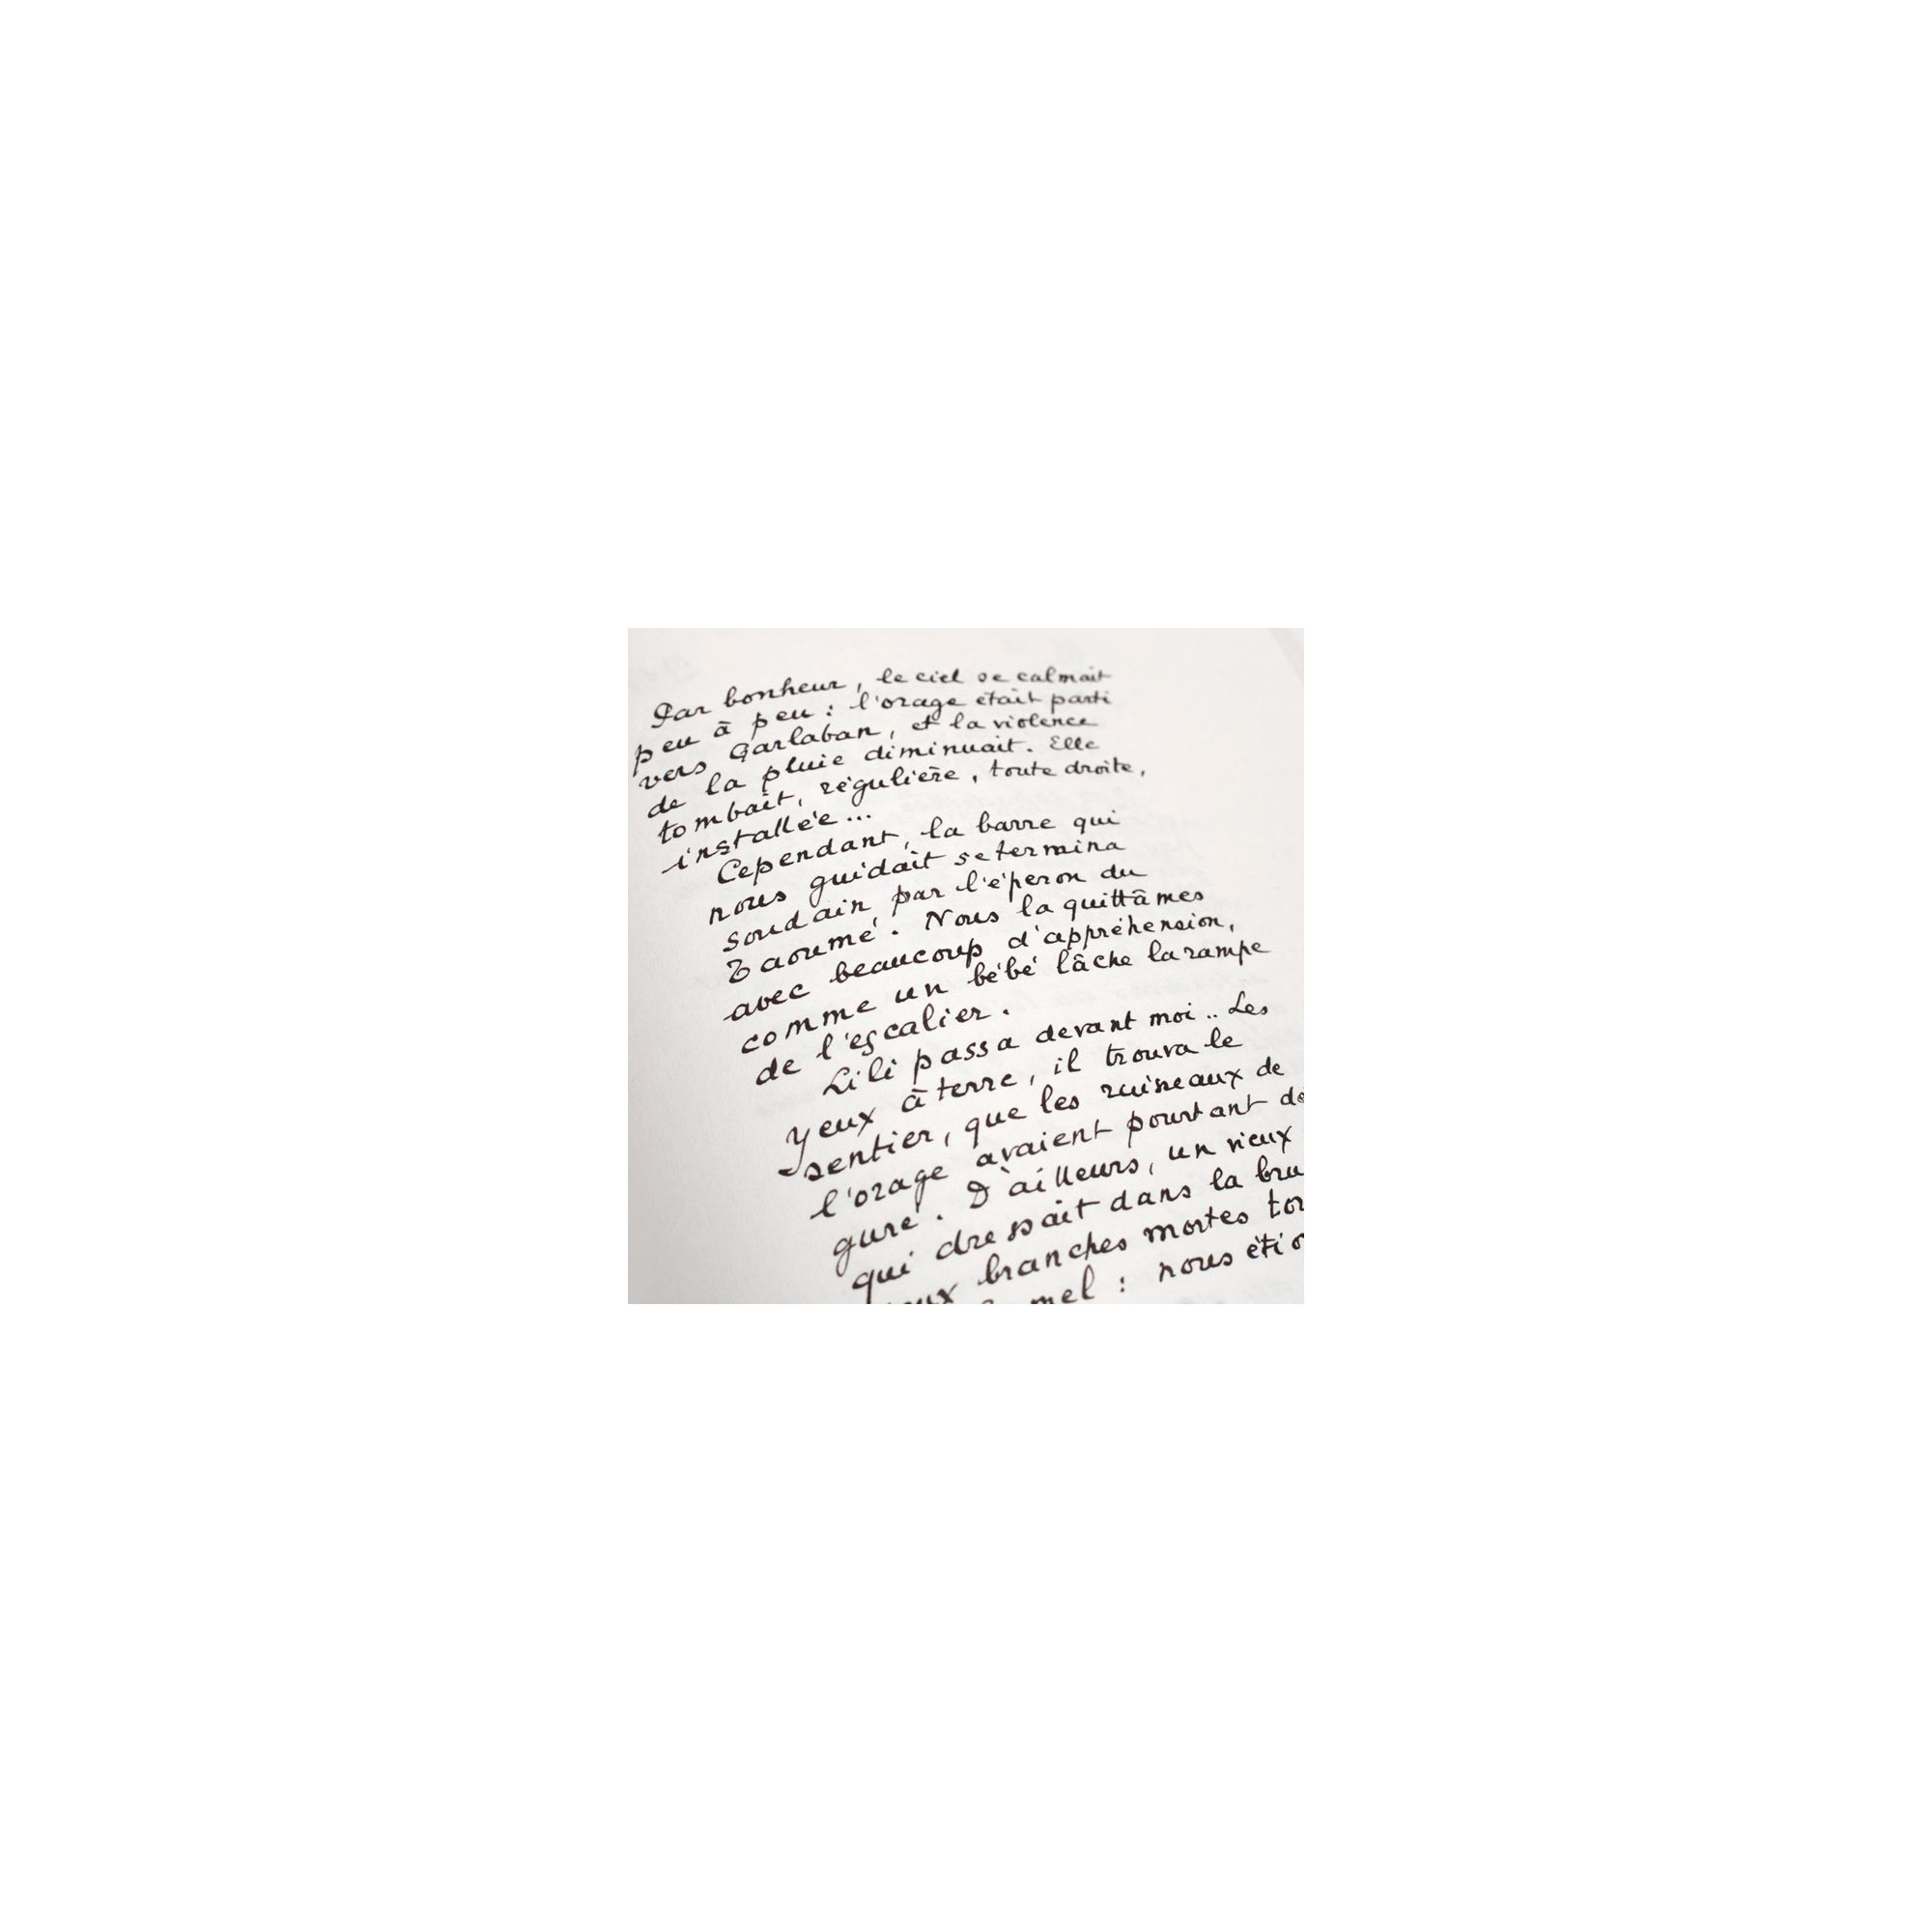 Par bonheur, le ciel se calmait
peu à peu : l'orage était parti
vers Garlaban, et la violence
de la pluie diminuait. Elle
tombait, régulière, toute droite,
installée...
Cependant, la barre qui
nous guidait se termina
soudain, par l'éperon du
Taoumé. Nous la quittâmes
avec beaucoup d'appréhension,
comme un bébé lâche la rampe
de l'escalier.
Lili passa devant moi.. Les
yeux à terre, il trouva le
sentier, que les ruisseaux de
l'orage avaient pourtant dé
guré. D'ailleurs, un vieux
qui dressait dans la bru
branches mortes tor
mel : nous étio